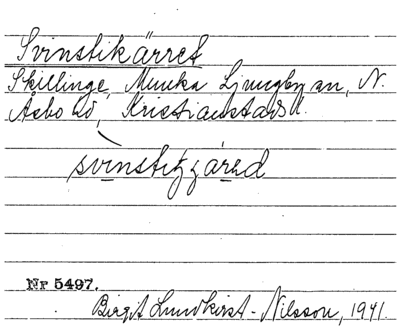 Svinstikärret
Skillinge, Munka Ljungby sn, N.
Åsbo hd, Kristianstads l.
svinstizzäred
Nr 5497.
Birgit Lundkvist-Nilsson, 1941.